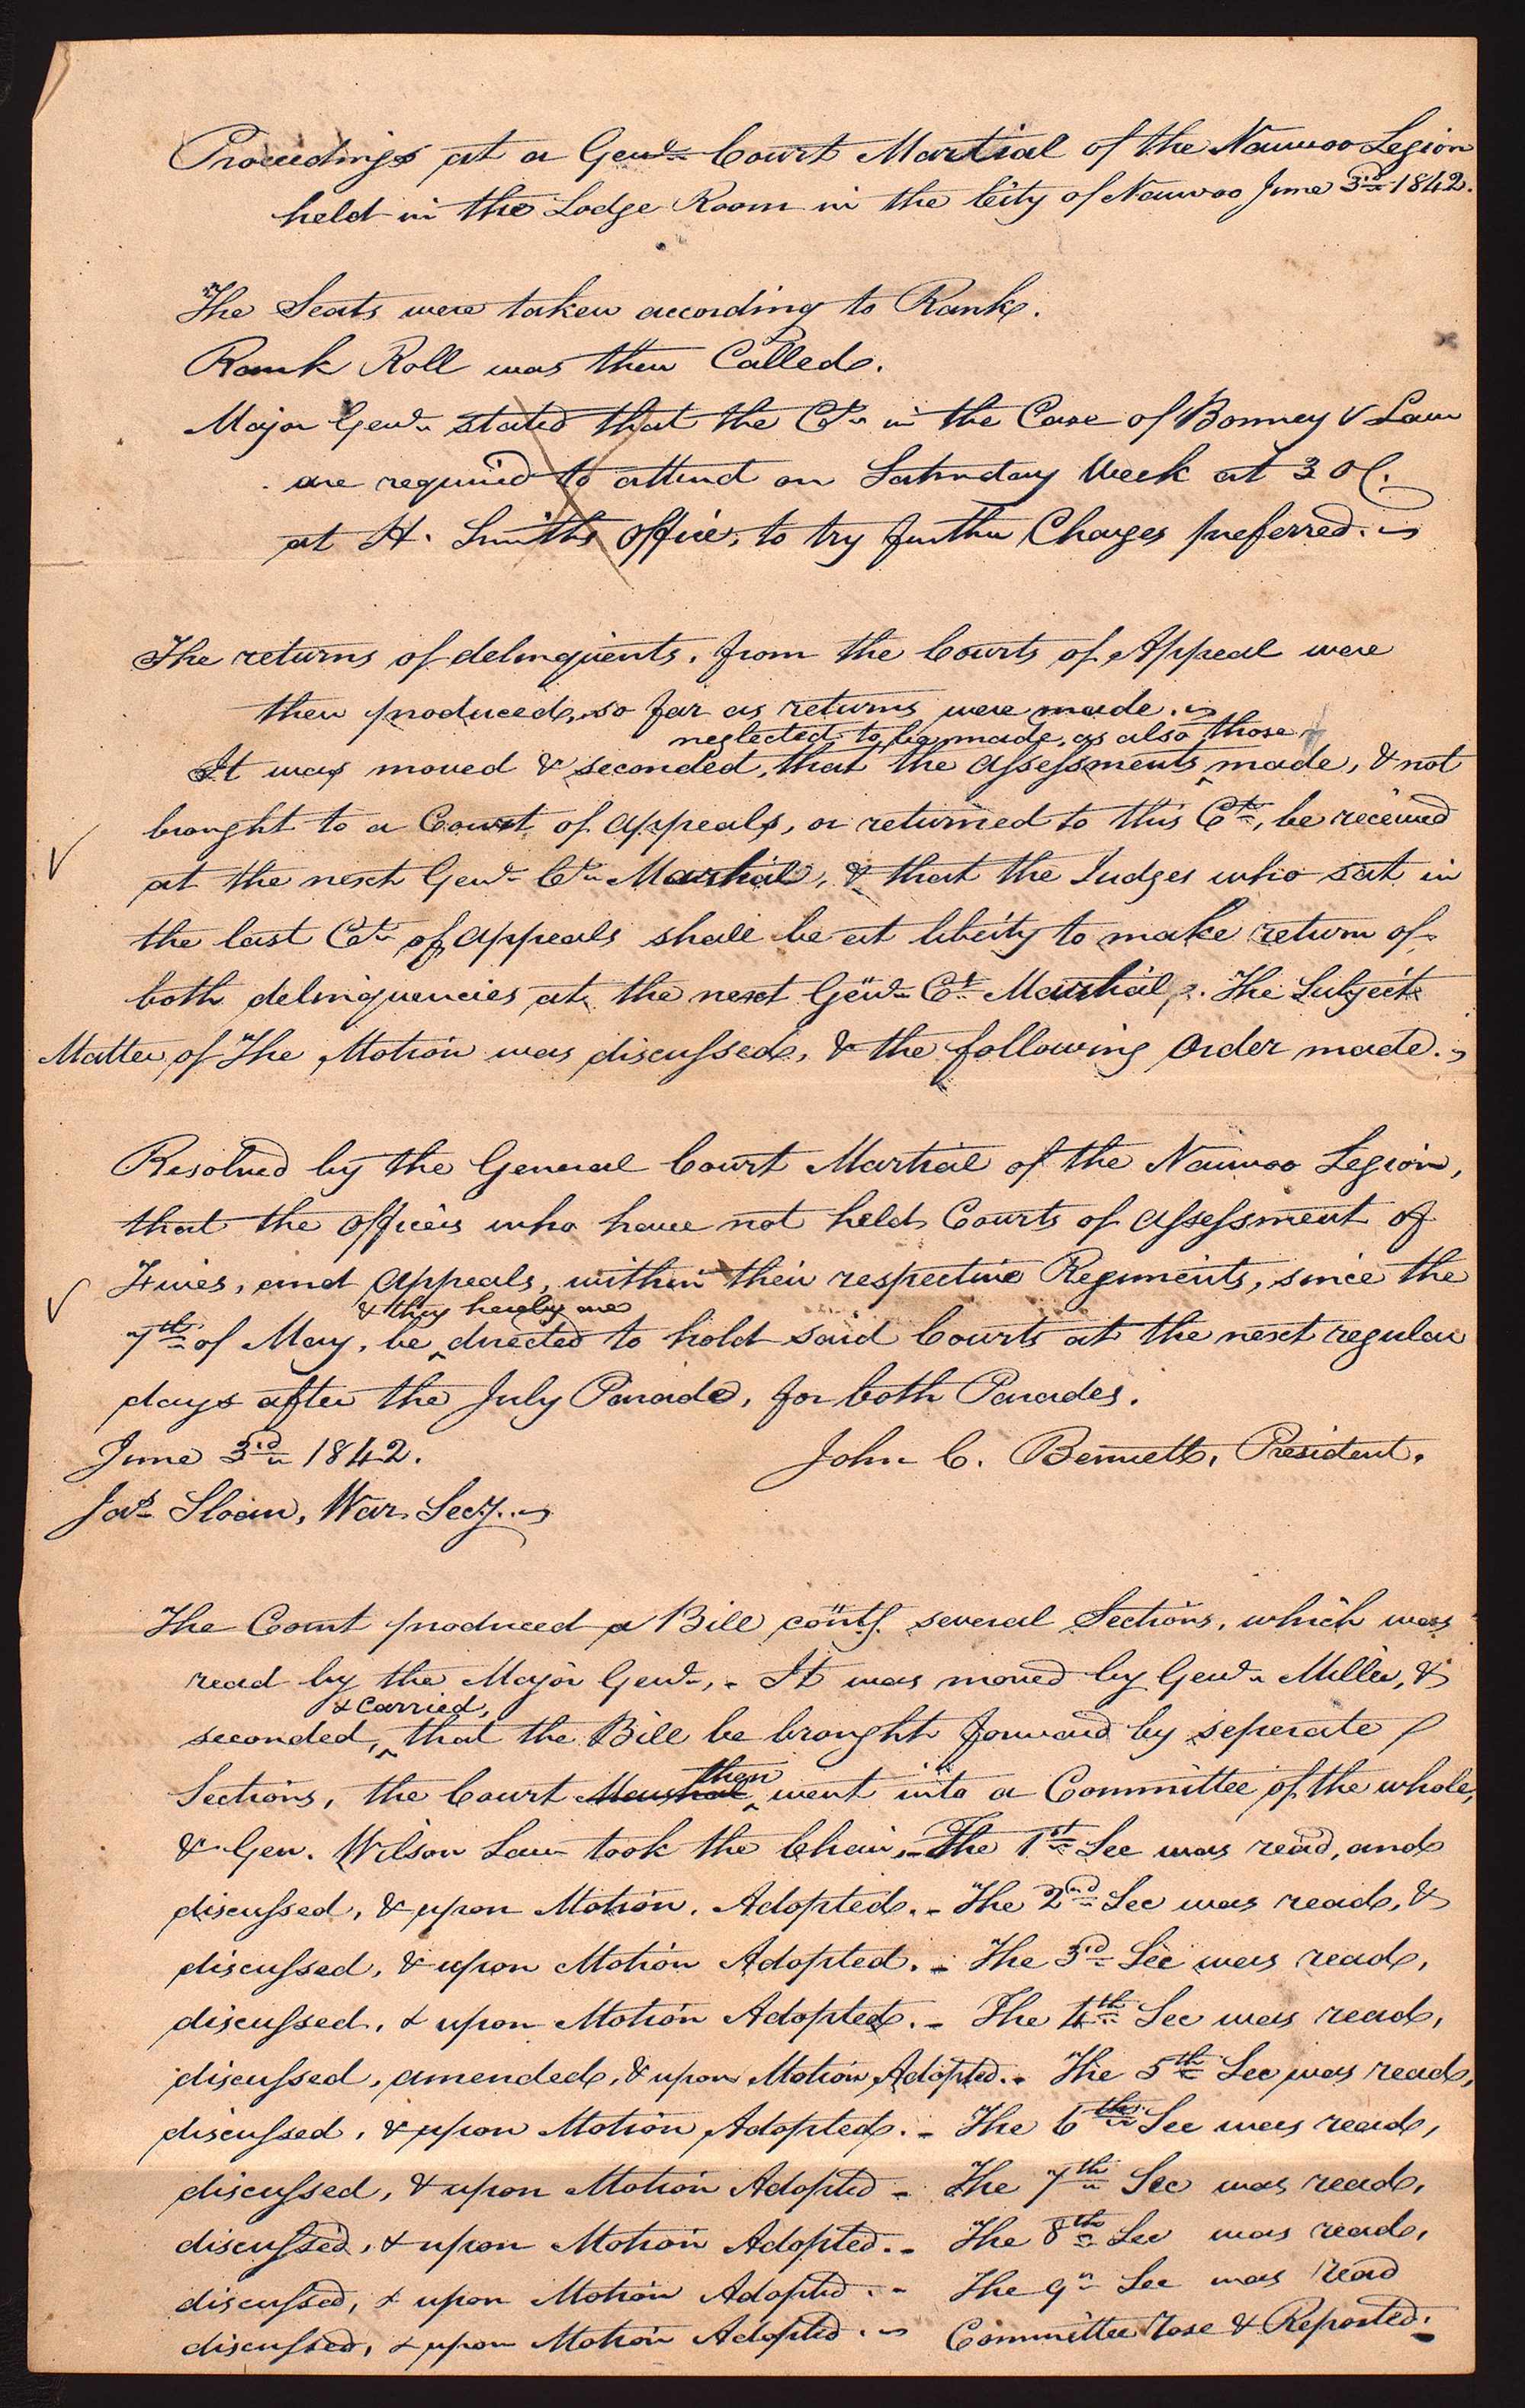 Proceedings at a Genl. Court Martial of the Nauvoo Legion
held in the Lodge Room in the City of Nauvoo June 3rd 1842.
The Seats were taken according to Rank.
Rank Roll was then Called.
Major Genl. stated that the Ct. in the Case of Bonney & Law
are required to attend on Saturday Week at 3 OC.
at H. Smiths Office, to try further Charges preferred.
The returns of delinquents, from the Courts of Appeal were
then produced, so far as returns were made.
neglected to be made, as also those
It was moved & seconded, that the assessments made, & not
brought to a Court of Appeals, or returned to this Ct., be received
at the next Genl. Ct. Martial, & that the Judges who sat in
the last Ct. of Appeals shall be at liberty to make return of
both delinquencies at the next Genl. Ct. Martial. The Subject
Matter of The Motion was discussed, & the following Order made.
Resolved by the General Court Martial of the Nauvoo Legion,
that the Officers who have not held Courts of Assessment of
Fines, and Appeals, within their respective Regiments, since the
& they hereby are
7th of May, be directed to hold said Courts at the next regular
days after the July Parade, for both Parades.
June 3rd 1842.
John C. Bennett, President.
Jas. Sloan, War Secy.
The Court produced a Bill contg. several Sections, which was
read by the Major Genl., - It was moved by Genl. Miller, &
& carried,
seconded, that the Bill be brought forward by seperate
then
Sections, the Court Marshal went into a Committee of the whole,
& Gen. Wilson Law took the Chair, - The 1st Sec was read, and
discussed, & upon Motion, Adopted. - The 2nd Sec was read, &
discussed, & upon Motion Adopted. - The 3rd Sec was read,
discussed, & upon Motion Adopted. - The 4th Sec was read,
discussed, amended, & upon Motion Adopted. - The 5th Sec was read,
discussed, & upon Motion Adopted. - The 6th Sec was read,
discussed, & upon Motion Adopted - The 7th Sec was read,
discussed, & upon Motion Adopted. - The 8th Sec was read,
discussed, & upon Motion Adopted. - The 9th Sec was read
discussed, & upon Motion Adopted. - Committee rose & Reported.